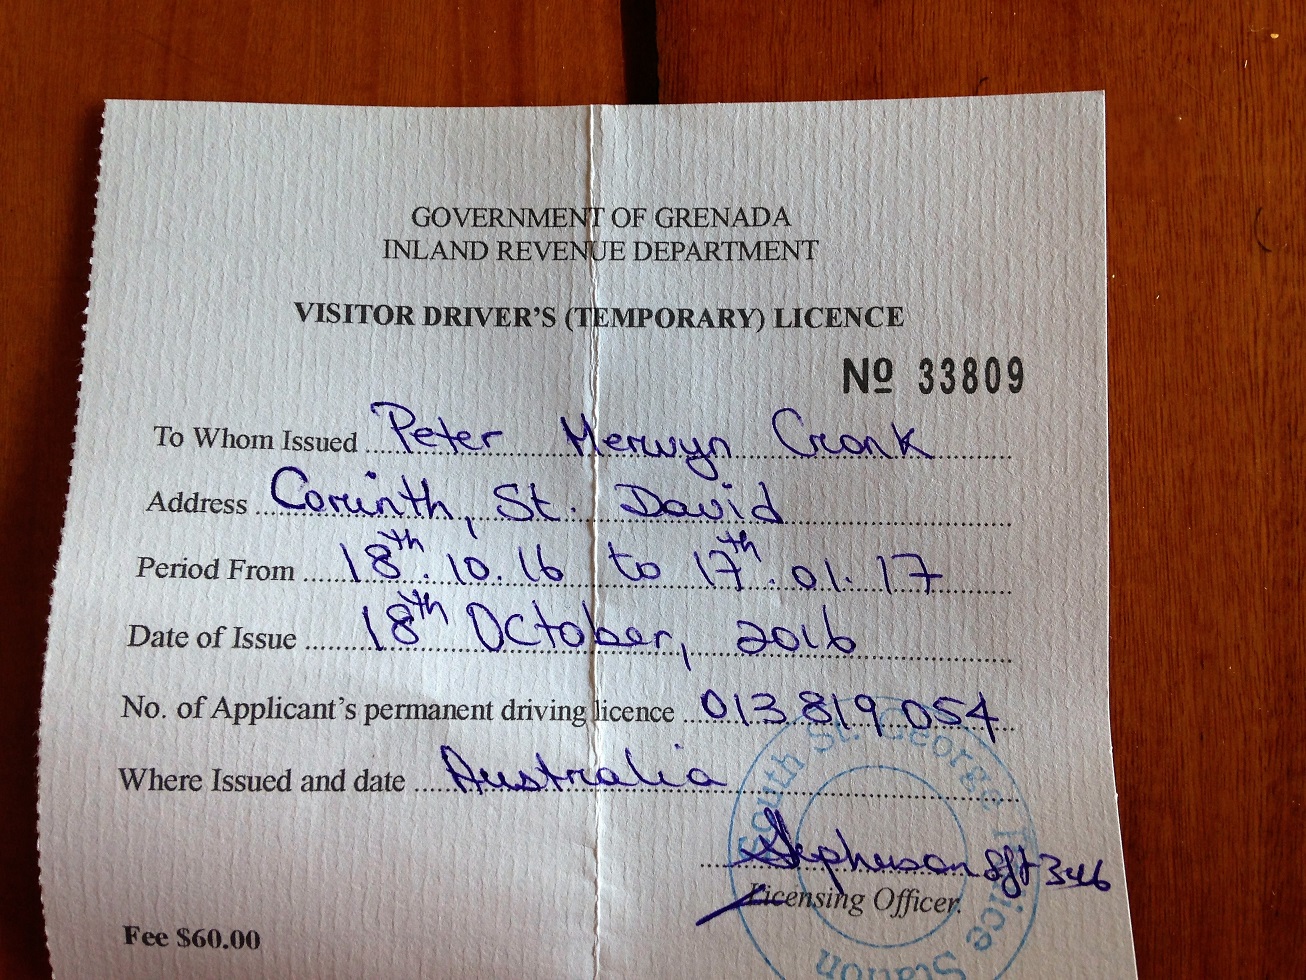 GOVERNMENT OF GRENADA
INLAND REVENUE DEPARTMENT
VISITOR DRIVER'S (TEMPORARY) LICENCE
Nº 33809
To Whom Issued Peter Merwyn Cronk
Address Corinth, St. David
Period From 18th.10.16 to 17th.01.17
Date of Issue 18th October, 2016
No. of Applicant's permanent driving licence 013819054
Where Issued and date Australia
South St. George Police Station
Stephenson Sgt 346
Licensing Officer.
Fee $60.00